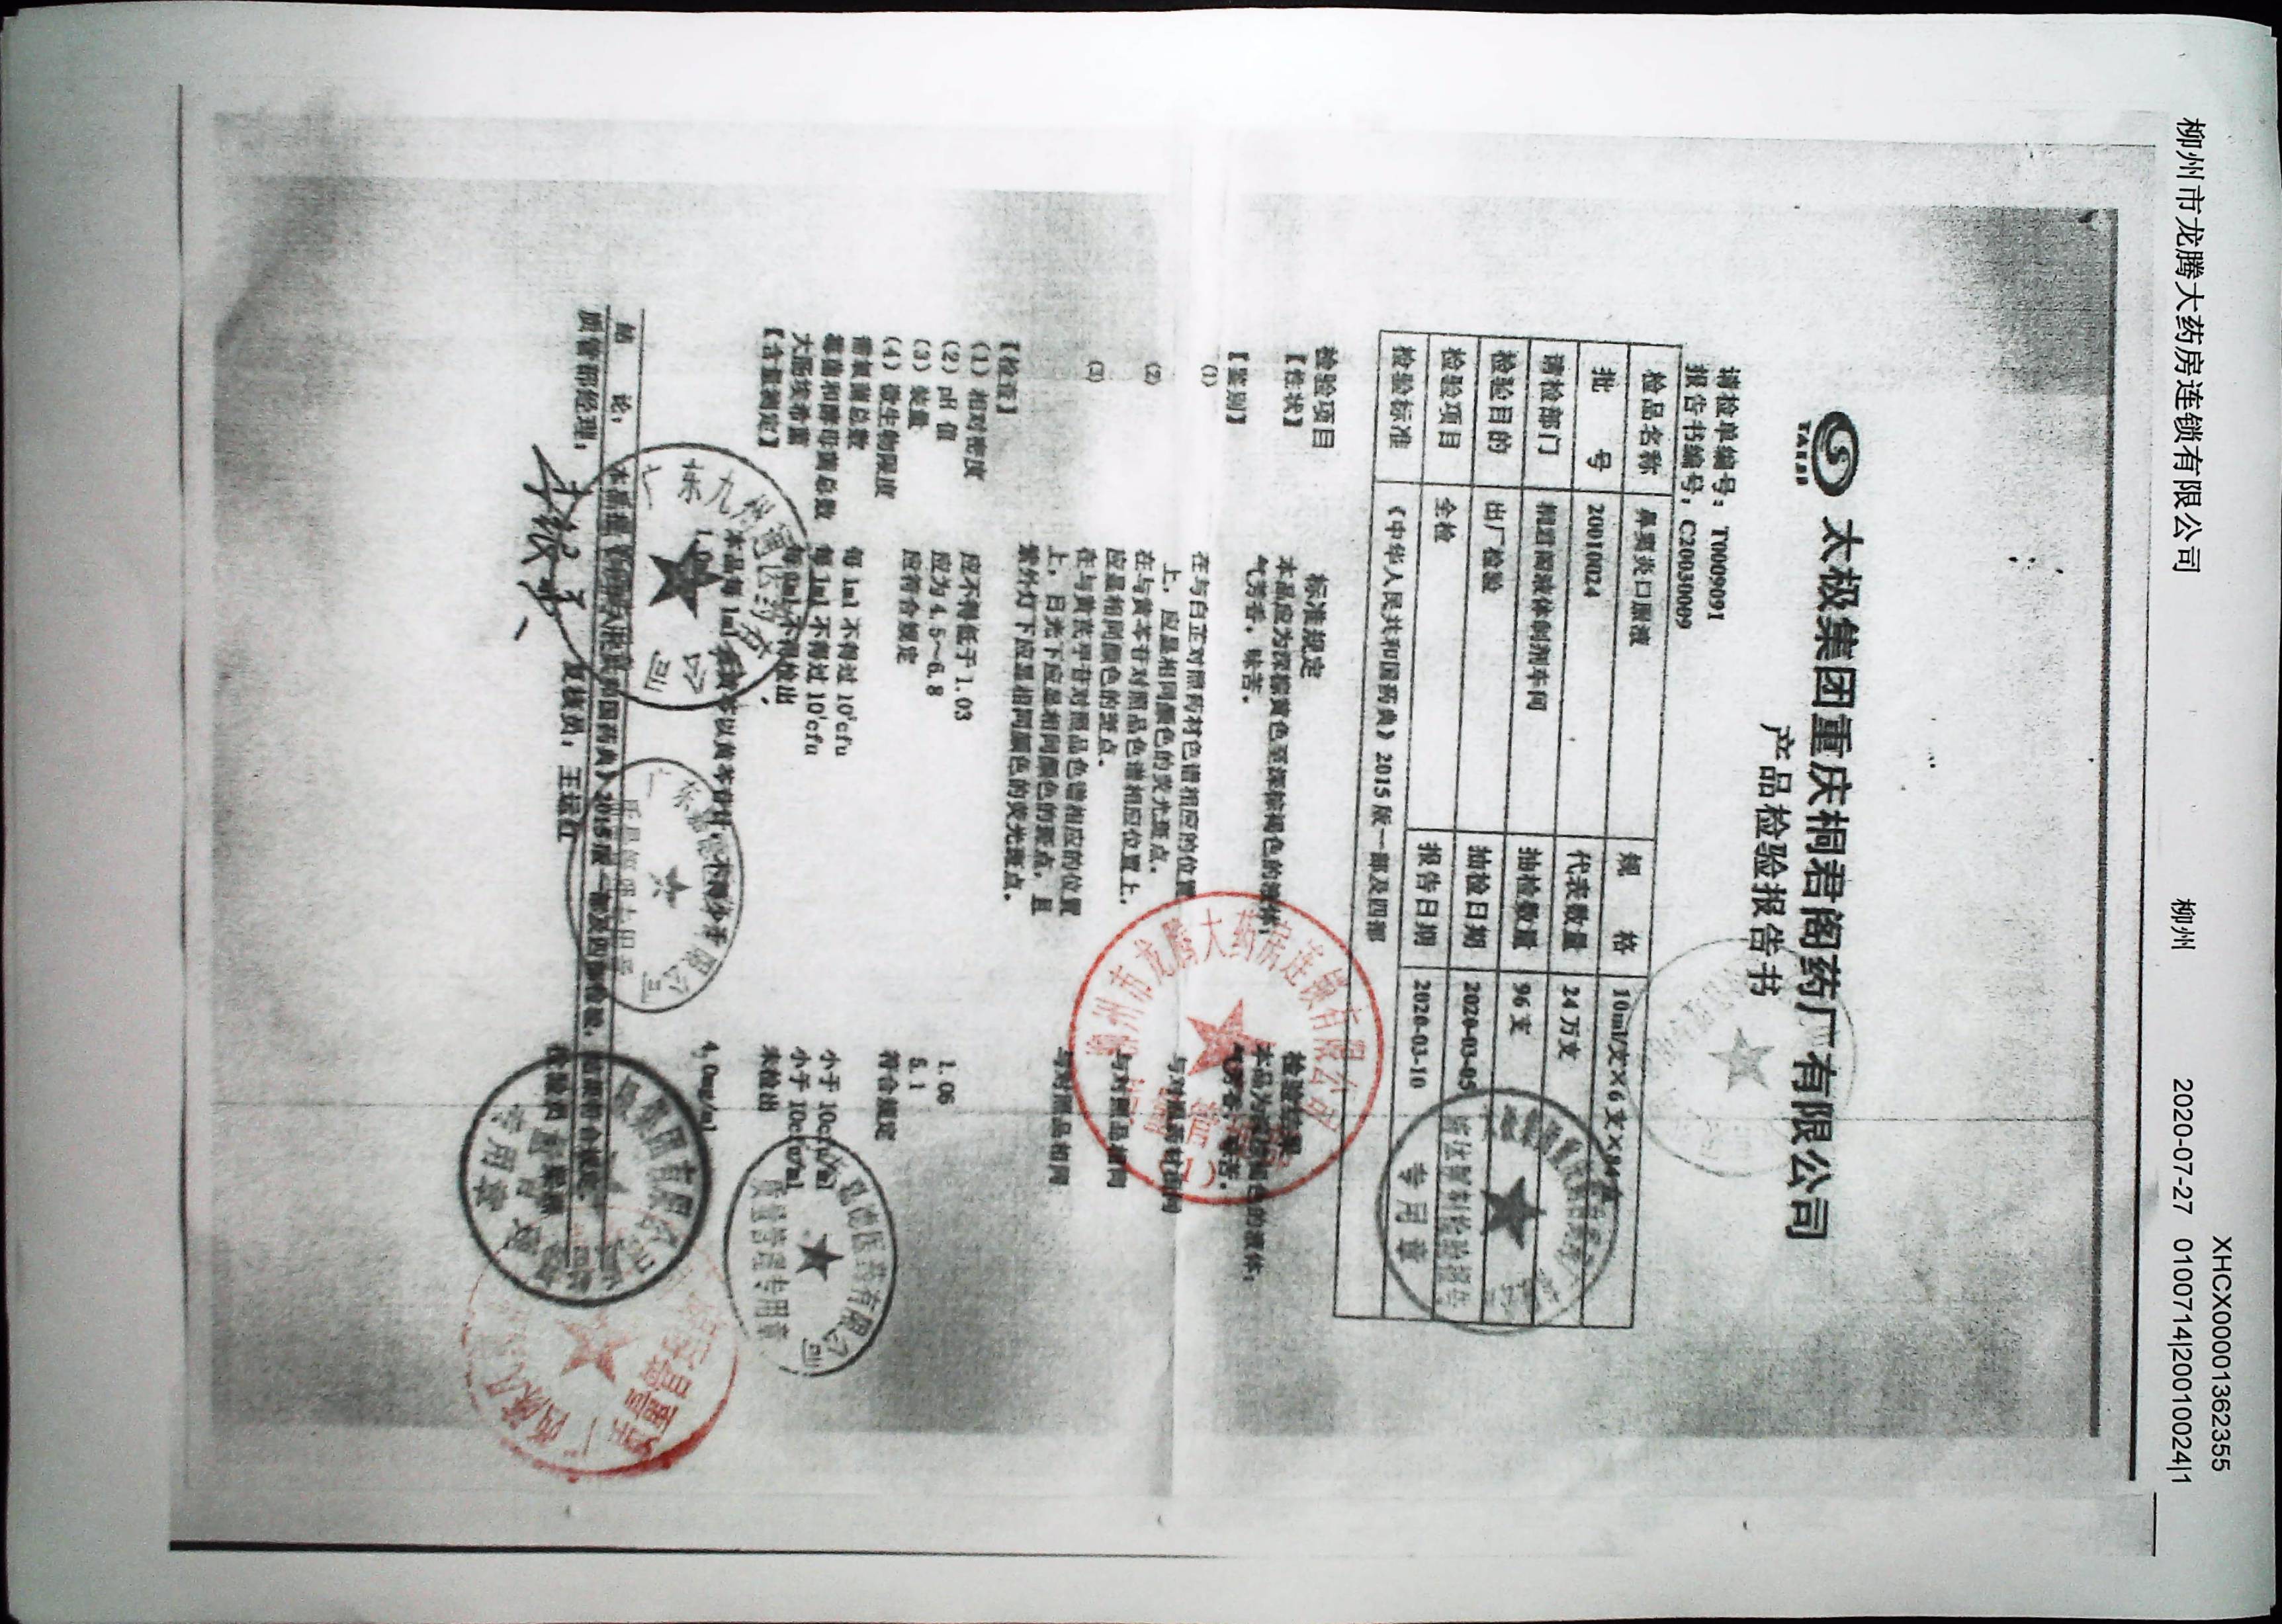 柳州市龙腾大药房连锁有限公司 柳州 2020-07-27 0100714|20010024|1
XHCX00001362355
TAIJI
太极集团重庆桐君阁药厂有限公司
产品检验报告书
请检单编号：T0009091
报告书编号：C20030009
检品名称 鼻窦炎口服液 规 格 10ml/支×6支×84盒
批 号 20010024 代表数量 24万支
请检部门 桐君阁液体制剂车间 抽检数量 96支
检验目的 出厂检验 抽检日期 2020-03-05
检验项目 全检 报告日期 2020-03-10
检验标准 《中华人民共和国药典》2015版一部及四部
检验项目 标准规定 检验结果
【性状】 本品应为深棕黄色至深棕褐色的液体； 本品为 色的液体；
气芳香，味苦。 气芳香，味苦。
【鉴别】
(1) 在与白芷对照药材色谱相应的位置 与对照药材相同
上，应显相同颜色的荧光斑点。
(2) 在与黄芩苷对照品色谱相应位置上， 与对照品相同
应显相同颜色的斑点。
(3) 在与黄芪甲苷对照品色谱相应的位置 与对照品相同
上，日光下应显相同颜色的斑点，且
紫外灯下应显相同颜色的荧光斑点。
【检查】
(1) 相对密度 应不得低于1.03 1.06
(2) pH 值 应为4.5~6.8 5.1
(3) 装量 应符合规定 符合规定
(4) 微生物限度
需氧菌总数 每1ml不得过10²cfu 小于10cfu/ml
霉菌和酵母菌总数 每1ml不得过10¹cfu 小于10cfu/ml
大肠埃希菌 每1ml不得检出 未检出
【含量测定】 本品每1ml 以黄芩苷计，不得少于 4.0mg/ml
结 论：本品按《中华人民共和国药典》2015版一部及四部检验，结果符合规定
质管部经理： 复核员：王运红 检验员
柳州市龙腾大药房连锁有限公司
(1)
广东九州通医药有限公司
质量管理专用章
专用章
成品制剂检验报告
专用章